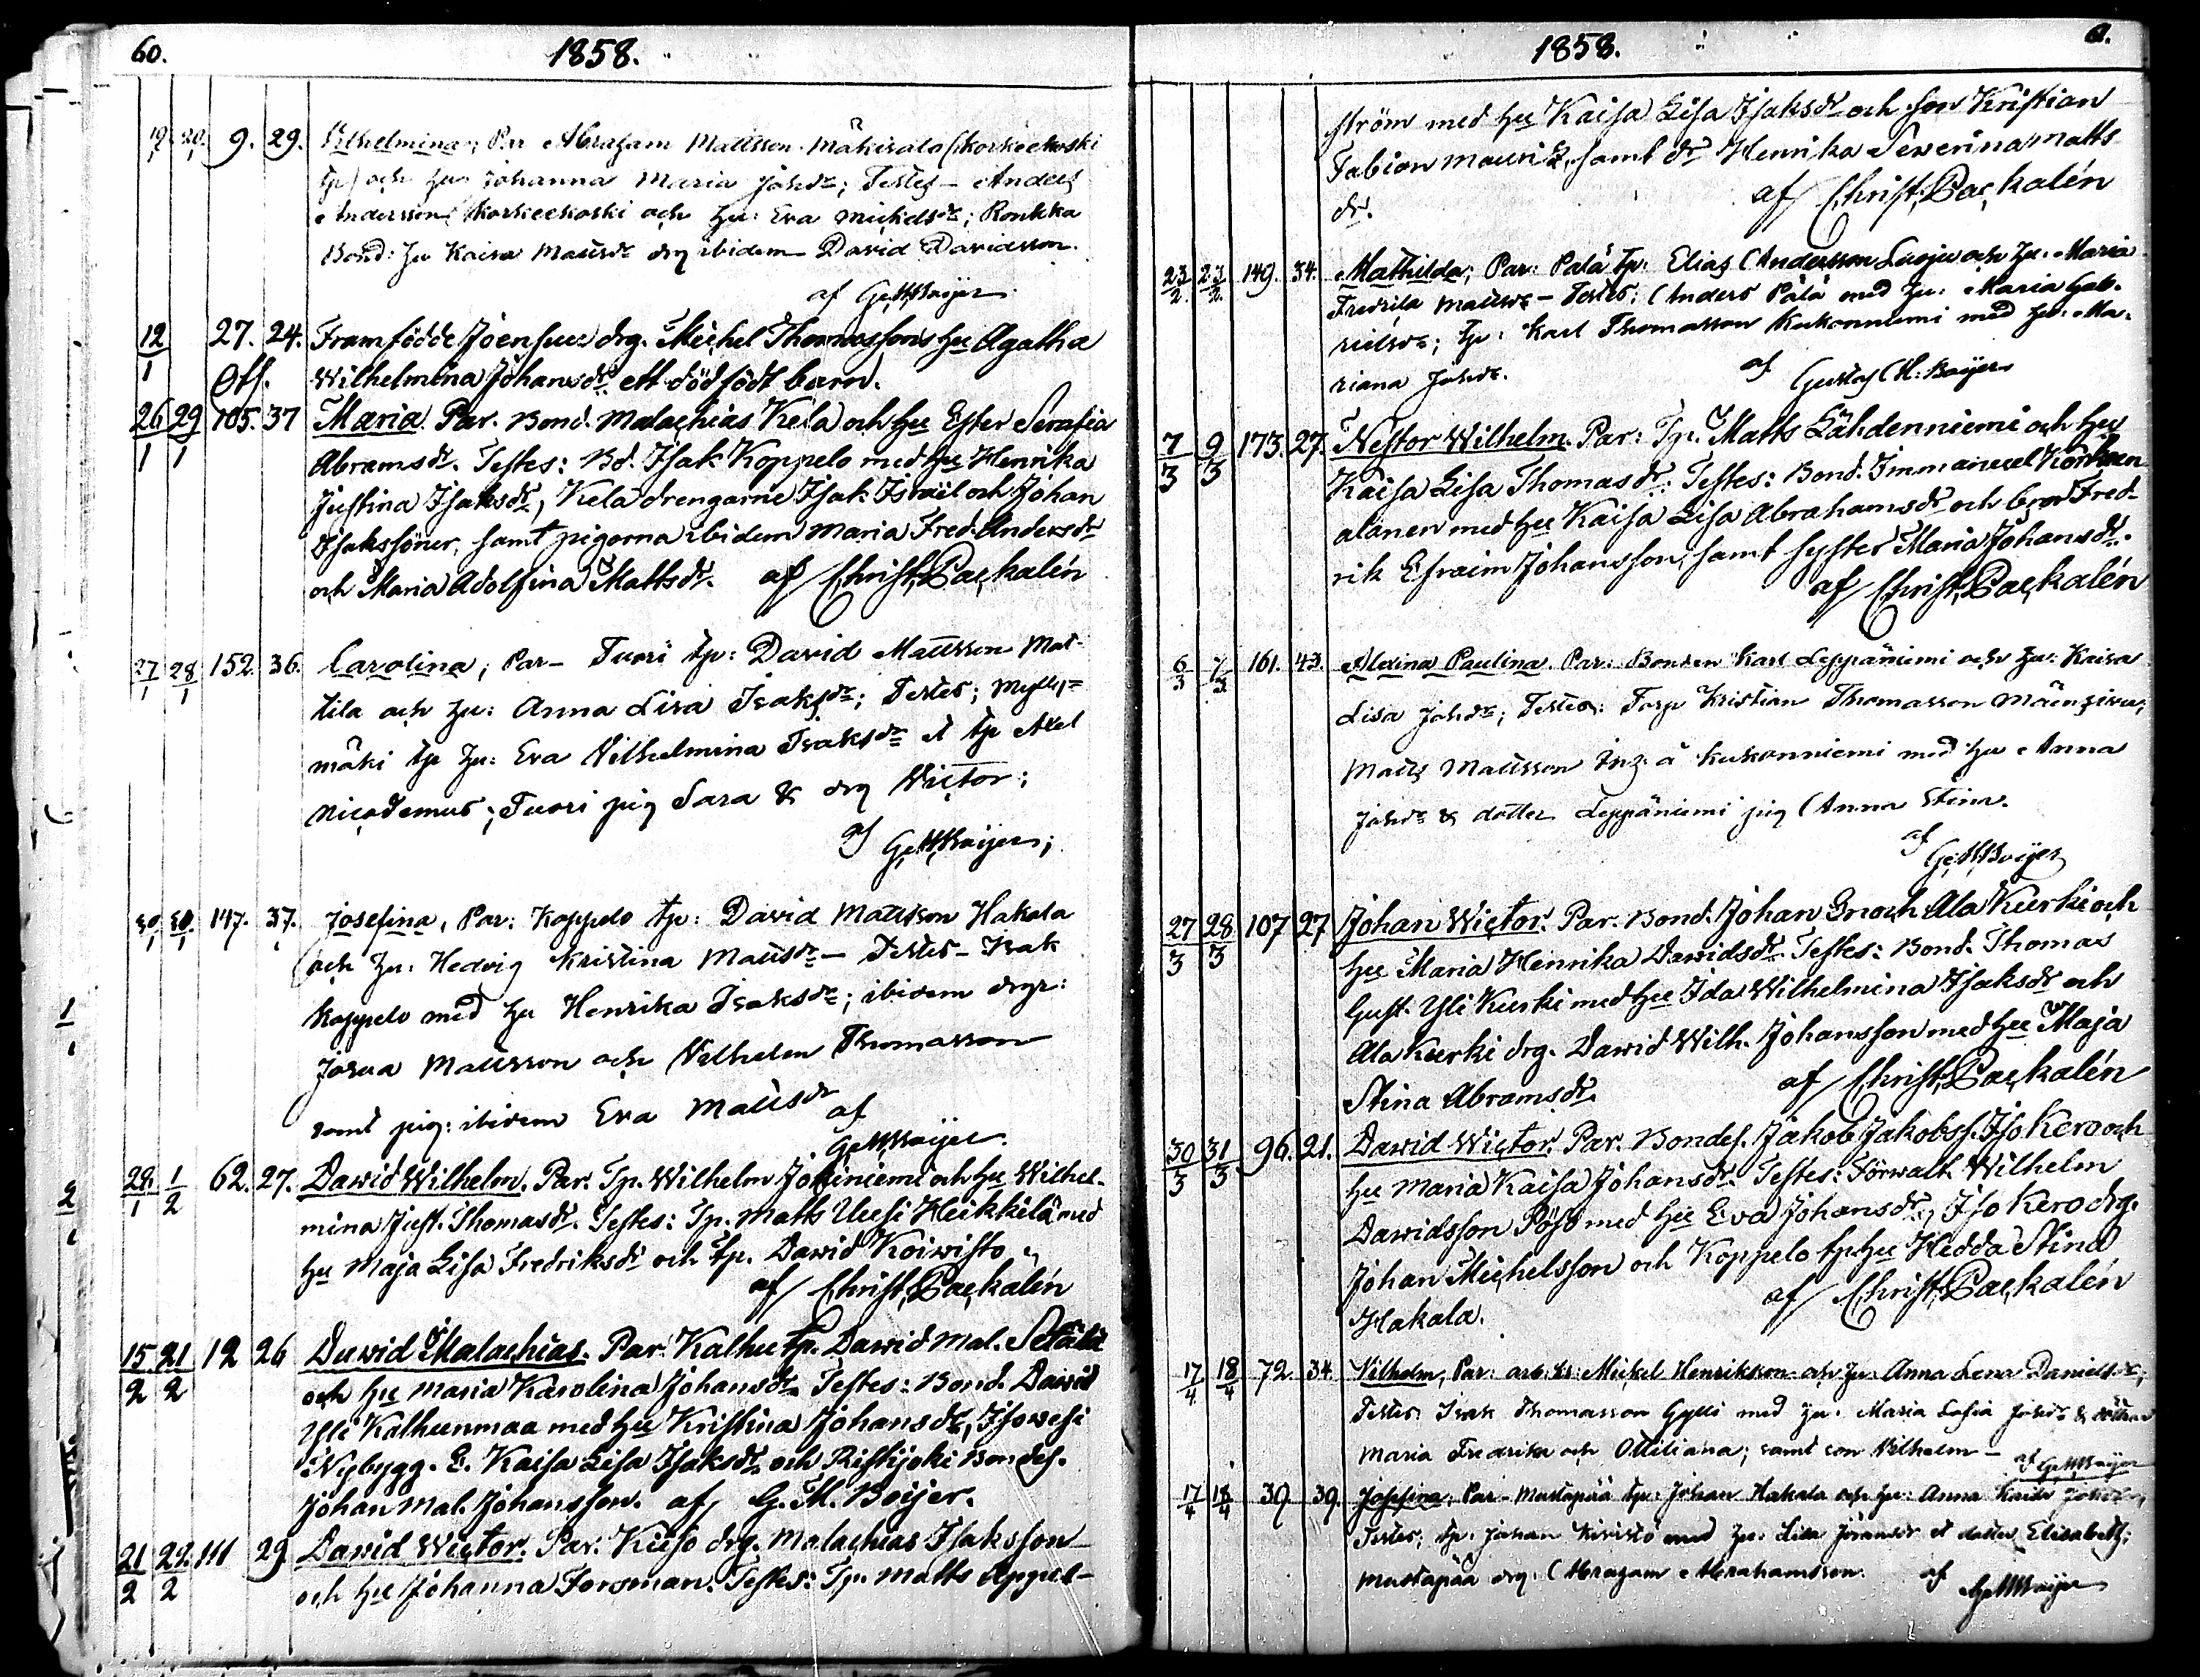 60. 1858.
19/1 20/1 9. 29. Vilhelmina; Par Abraham Mattsson Mäkisalo (Korkeekoski
tp) och hu: Johanna Maria Johsdr; Testes – Anders
Andersson Korkeekoski och hu: Eva Mickelsdr; Ronkka
Bond: hu Kaisa Mattsdr drg ibidem David Davidsson.
af G.M.Boijer
12/1 27. 24. Framfödde Joensuu drg. Michel Thomassons hu Agatha
Off. Wilhelmina Johansdr ett dödfödt barn.
26/1 29/1 105. 37 Maria. Par. Bond. Malachias Kela och hu Ester Serafia
Abramsdr. Testes: Bd. Isak Koppelo med hu Henrika
Justina Isaksdr, Kela drengarne Isak Israël och Johan
Isakssöner, samt pigorna ibidem Maria Fred. Andersdr
och Maria Adolfina Mattsdr. af Christ. Packalén
27/1 28/1 152. 36. Carolina; Par – Tuori tp: David Mattsson Mat-
tila och hu: Anna Lisa Isaksdr; Testes; Mylly=
mäki tp hu: Eva Vilhelmina Isaksdr et tp Axel
Nicodemus; Tuori pig Sara & drg Victor;
af G.M.Boijer;
30/1 30/1 147. 37. Josefina, Par: Koppelo tp: David Mattsson Hakala
och hu: Hedvig Kristina Mattsdr – Testes – Isak
Koppelo med hu Henrika Isaksdr; ibidem drgr:
Josua Mattsson och Vilhelm Thomasson
samt pig: ibidem Eva Mattsdr
af
G.M.Boijer.
29/1 1/2 62. 27. Dawid Wilhelm. Par. Tp. Wilhelm Jokiniemi och hu Wilhel-
mina Just. Thomasdr. Testes: Tp. Matts Uusi Heikkilä med
hu Maja Lisa Fredriksdr och tp. Dawid Koiwisto
af Christ. Packalén
15/2 21/2 12 26 Dawid Malachias. Par. Kalhu tp. Dawid Mal. Setälä
och hu Maria Karolina Johansdr. Testes: Bond. Dawid
Yli Kalhunmaa med hu Kristina Johansdr, Isowesi
Nybygg. E. Kaisa Lisa Isaksdr och Ristijoki Bondes.
Johan Mal. Johansson. af G. M. Boijer.
21/2 22/2 111 29 Dawid Wictor. Par: Kuso drg. Malachias Isaksson
och hu Johanna Forsman. Testes: Tp. Matts Appel-
1858. 61.
ström med hu Kaisa Lisa Isaksdr och son Kristian
Fabian Mauritz, samt dr Henrika Sewerina Matts
dr. af Christ. Packalén
23/2 23/2 149. 34. Mathilda; Par: Palä tp: Elias Andersson Luoju och hu: Maria
Fredrika Mattsdr – Testes; Anders Pälä med hu: Maria Gab-
rielsdr; tp: Karl Thomasson Kukonniemi med hu: Ma-
riana Johsdr. af
Gustaf M: Boijer
7/3 9/3 173. 27. Nestor Wilhelm. Par: Tp. Matts Lähdenniemi och hu
Kaisa Lisa Thomasdr. Testes: Bond. Immanuel
alanen med hu Kaisa Lisa Abrahamsdr och bror Fred-
rik Efraim Johansson, samt syster Maria Johansdr.
af Christ. Packalén
6/3 7/3 161. 43. Alexina Paulina. Par: Bonden Karl Leppäniemi och hu: Kaisa
Lisa Johsdr; Testes: Torp Kristian Thomasson Mäensivu;
Matts Mattsson Inh. å Kukonniemi med hu Anna
Johsdr & dotter Leppäniemi pig Anna Stina.
af
G.M.Boijer
27/3 28/3 107 27 Johan Wictor. Par. Bond. Johan Enoch Ala Kurki och
hu Maria Henrika Dawidsdr. Testes: Bond. Thomas
Gust. Yli Kurki med hu Ida Wilhelmina Isaksdr och
Ala Kurki drg. Dawid Wilh. Johansson med hu Maja
Stina Abramsdr. af Christ. Packalén
30/3 31/3 96. 21. Dawid Wictor. Par. Bondes. Jakob Jakobss. Iso Kero och
hu Maria Kaisa Johansdr. Testes: Förwalt. Wilhelm
Dawidsson Pöyö med hu Eva Johansdr, Iso Kero drg.
Johan Michelsson och Koppelo tp. hu Hedda Stina
Hakala. af Christ. Packalén
17/4 18/4 72. 34. Vilhelm, Par: arb.kr: Mickel Henriksson och hu: Anna Lena Danielsdr;
Testes: Isak Thomasson Gylli med hu: Maria Sofia Johsdr & döttrar
Maria Fredrika och Ottiliana; samt son Vilhelm – af G.M.Boijer
17/4 18/4 39 39. Josefina; Par – Mustapää tp: Johan Hakala och hu: Anna Kaisa Johsdr;
Testes; tp: Johan Kivistö med hu: Lisa Johansdr et dotter Elisabeth;
Mustapää drg. Abraham Abrahamsson. af
G.M.Boijer